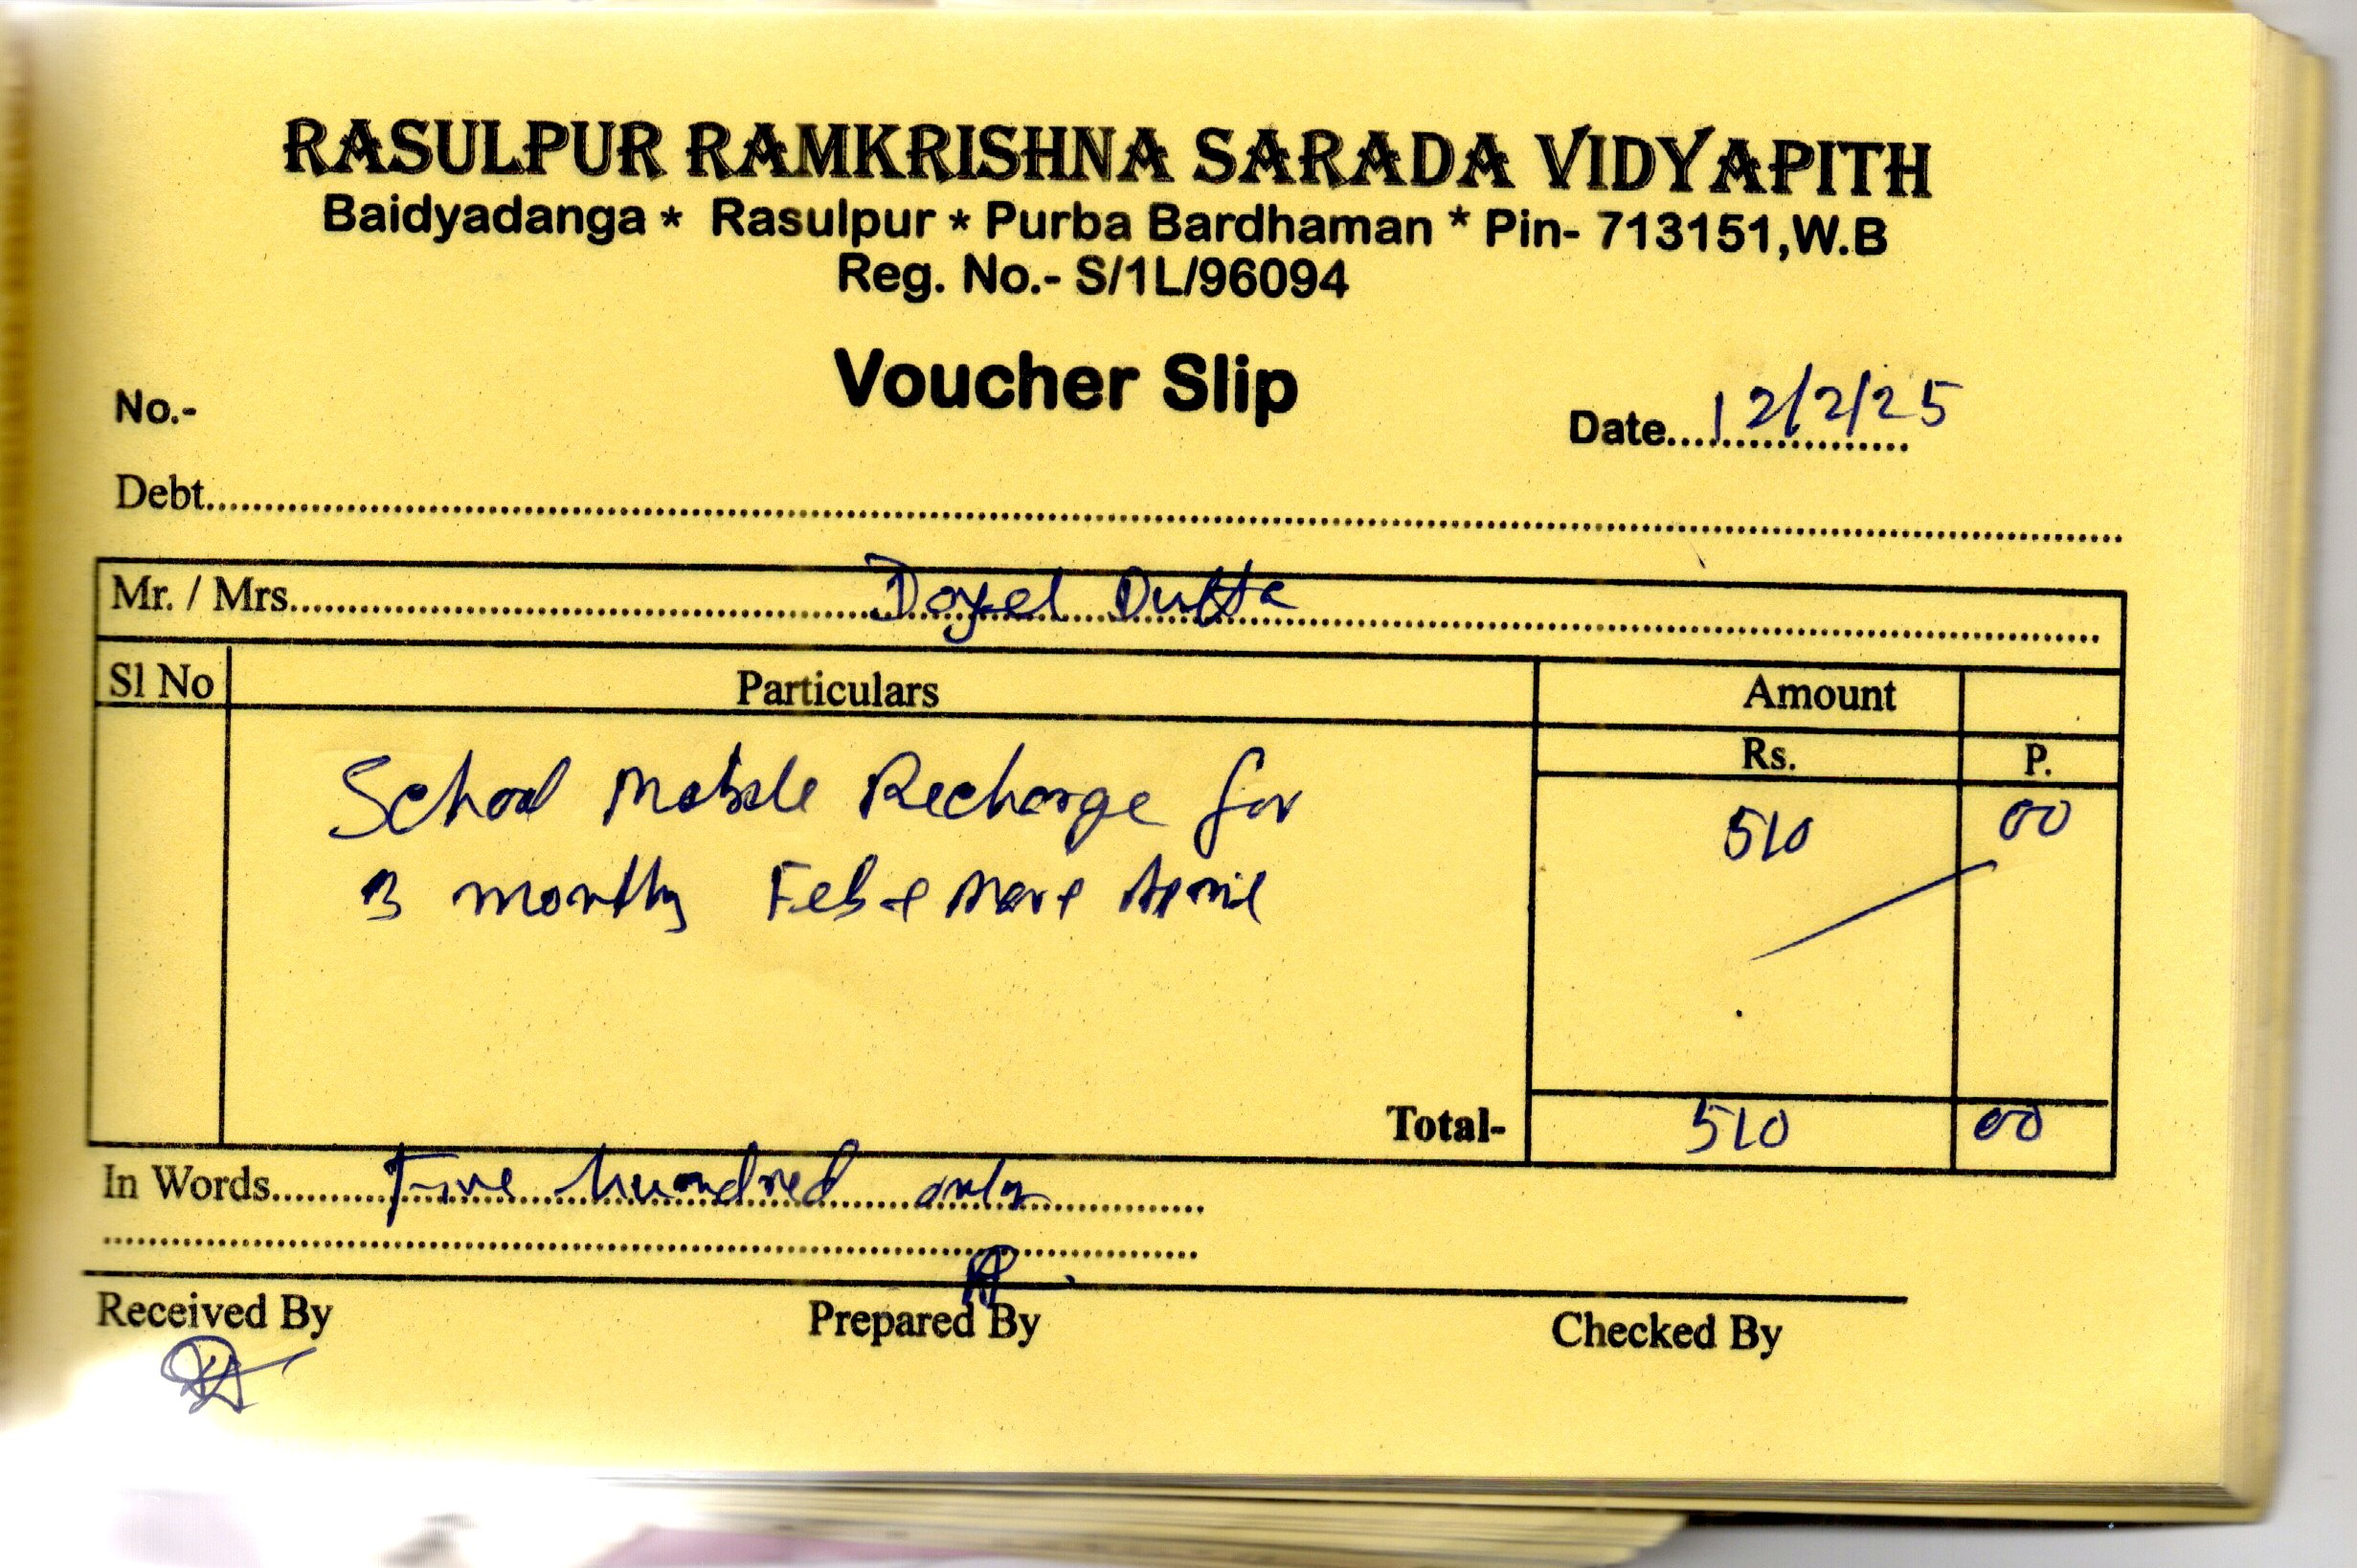 RASULPUR RAMKRISHNA SARADA VIDYAPITH
Baidyadanga * Rasulpur * Purba Bardhaman * Pin- 713151,W.B
Reg. No.- S/1L/96094
Voucher Slip
No.-
Date....12/2/25
Debt
Mr. / Mrs. Doyel Dutta
Sl No Particulars Amount
Rs. P.
School Mobile Recharge for 510 00
3 months Feb April
Total- 510 00
In Words Five hundred only
Received By Prepared By Checked By